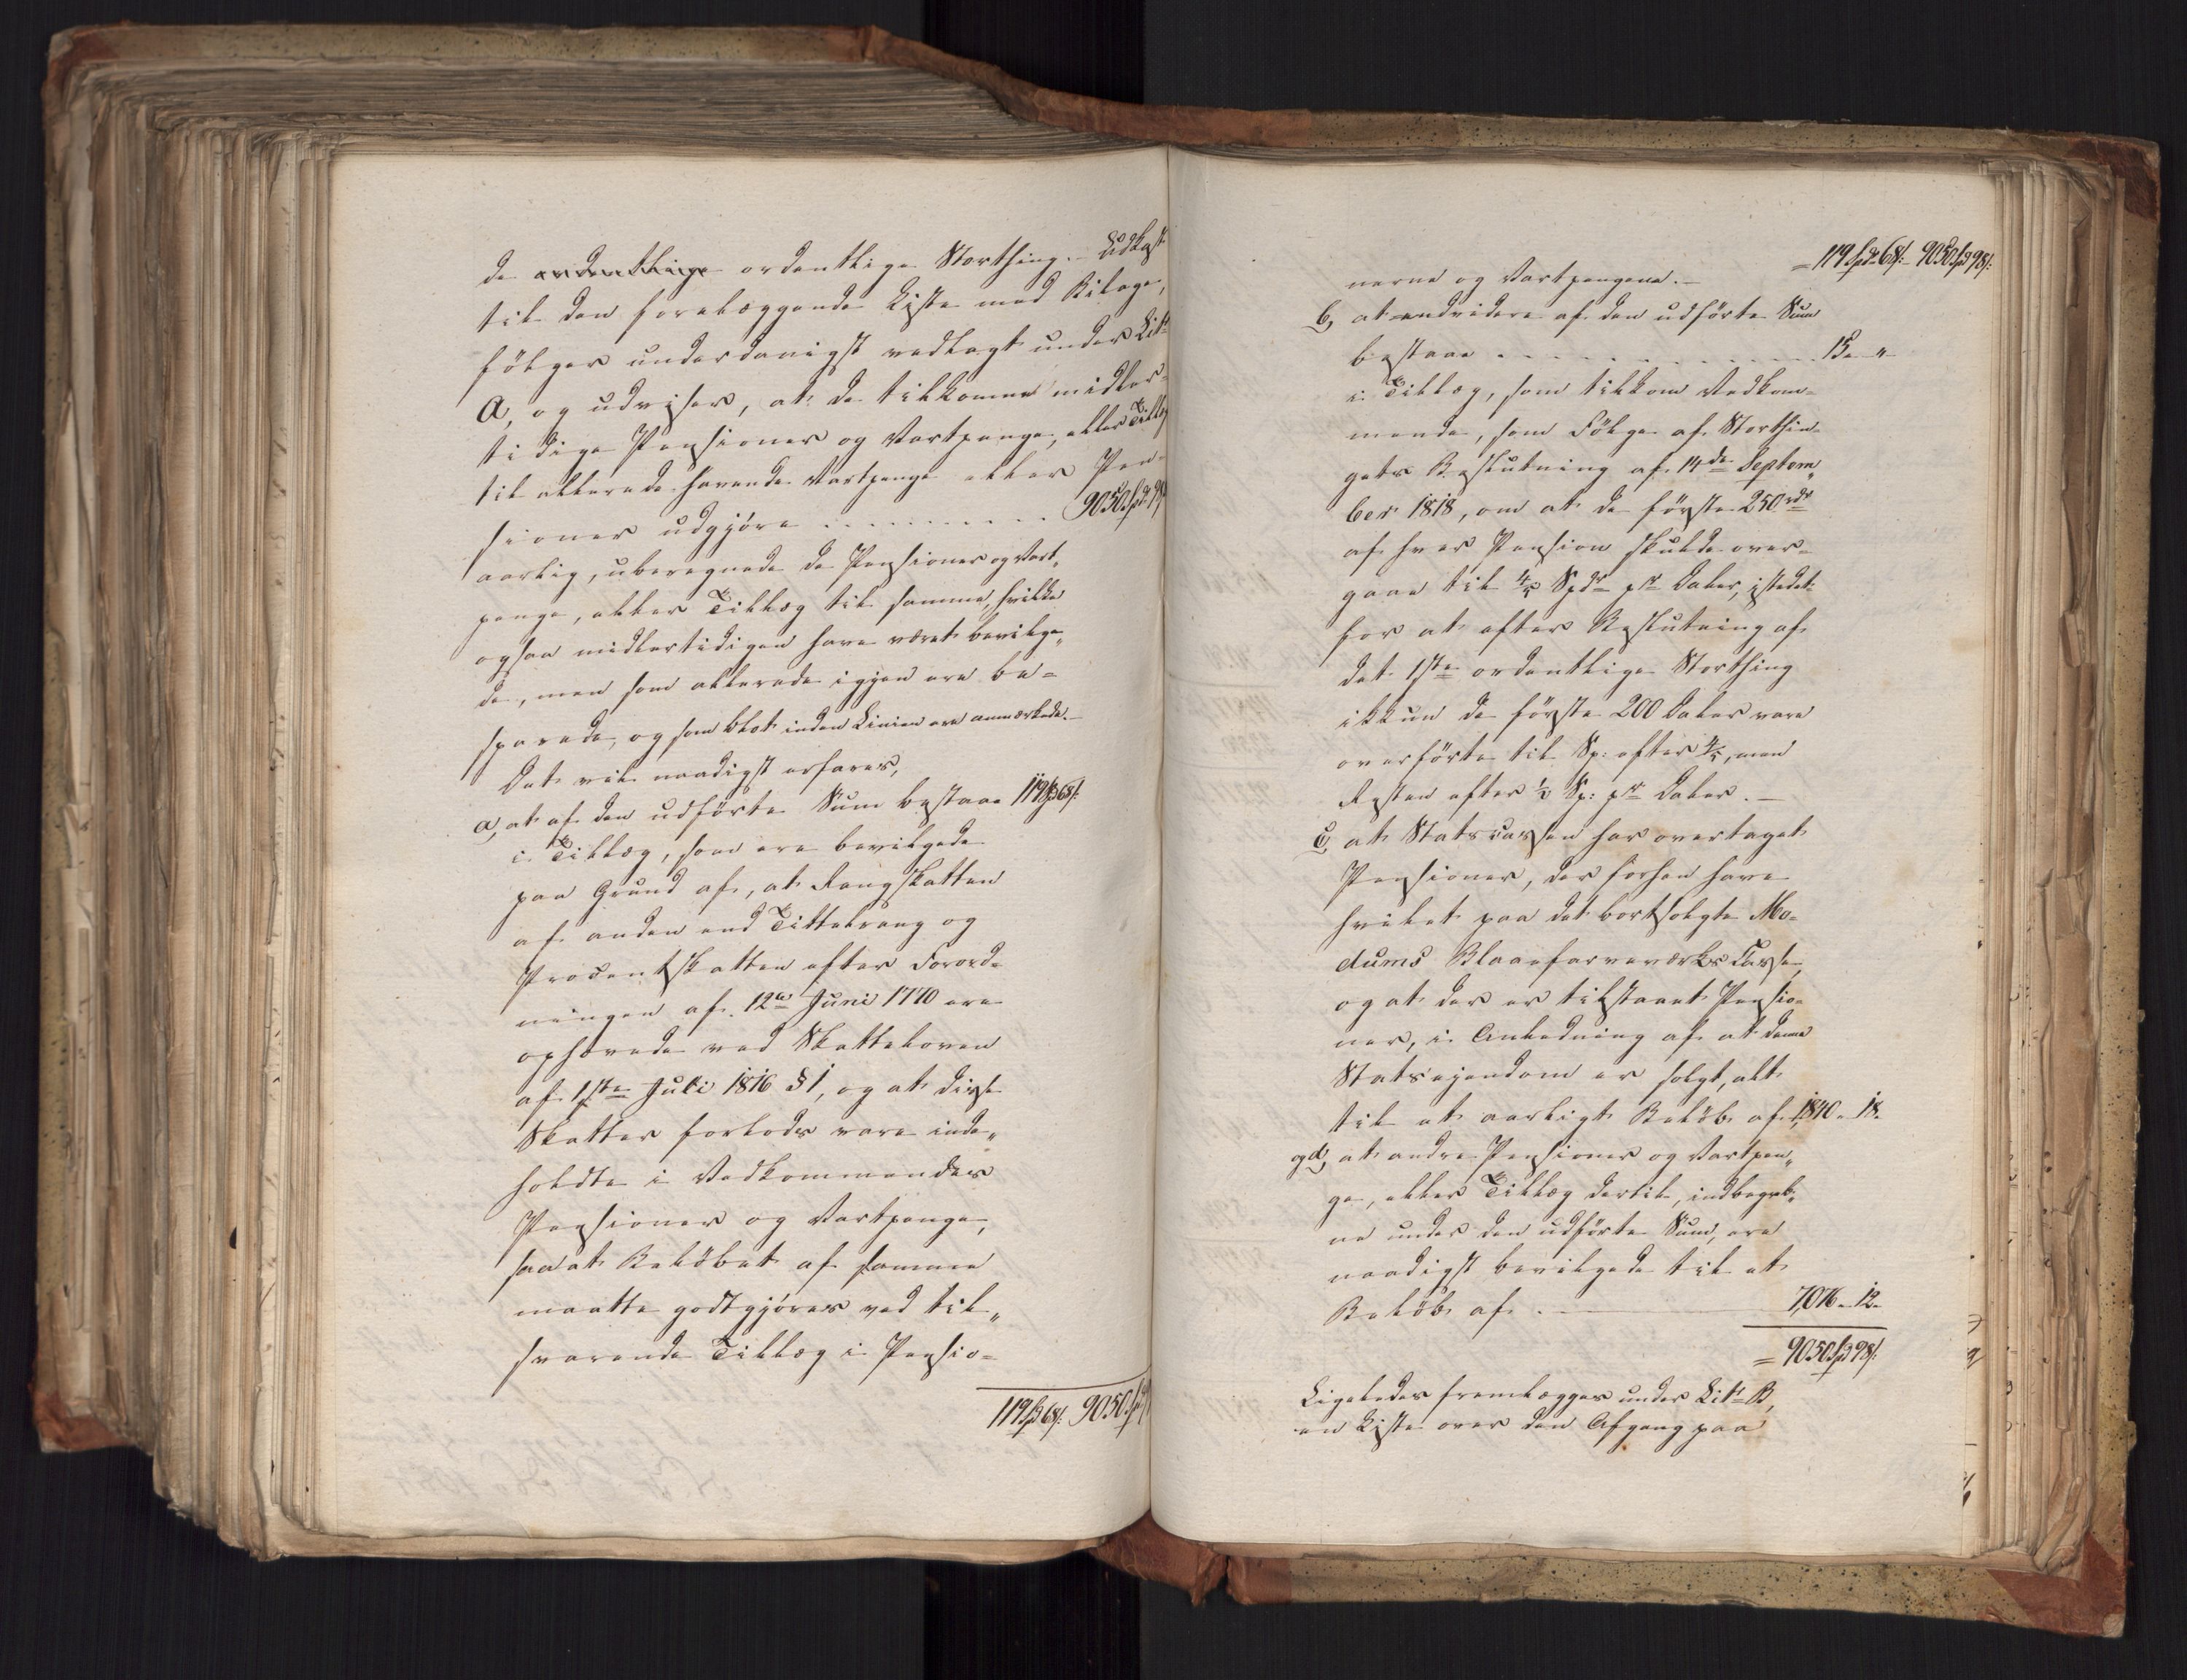 de ordentlige ordentlige Storthing. Udkast
til den forelæggende Liste med Bilage,
fölger underdanigst vedlagt under Litr
A, og udviser, at de tilkomne midler-
tidige Pensioner og Vartpenge, eller Tillæg
til allerede havende Vartpenge eller Pen-
sioner udgjøre . . . . . . . . . . 9050 Spd 98
aarlig, uberegnede de Pensioner og Vart„
penge, eller Tillæg til samme, hvilke
ogsaa midlertidigen have været bevilge„
de, men som allerede igjen ere be=
sparede, og som blot inden Linien ere anmærkede.—
Det vil naadigst erfares,
a, at af den udførte Sum bestaae 119 Spd 68 s:
i Tillæg, som ere bevilgede
paa Grund af, at Rangskatten
af anden end Tittelrang og
Procentskatten efter Forord-
ningen af 12te Juni 1770 ere
ophævede ved Skatteloven
af 1ste Juli 1816 § 1, og at disse
Skatter forlods vare inde„
holdte i Vedkommendes
Pensioner og Vartpenge,
saa at Belöbet af samme
maatte godtgjöres ved til„
svarende Tillæg i Pensio=
119 Spd 68 s: 9050 Spd
= 119 Spdr 68 s: 9050 Spd 98 s:
nerne og Vartpengene.—
b, at endvidere af den udförte Sum
bestaae . . . . . . . . . . . . . . 15 - "
i Tillæg, som tilkom Vedkom-
mende, som Fölge af Storthin-
gets Beslutning af 14de Septem„
ber 1818, om at de förste 250 rdr
af hver Pension skulde over-
gaae til 4/5 Spdr pr Daler, istedet
for at efter Beslutning af
det 1ste ordentlige Storthing
ikkun de förste 200 Daler vare
overförte til Sp: efter 4/5, men
Resten efter 1/2 Sp: pr Daler.—
c, at Statscassen har overtaget
Pensioner, der forhen have
hvilet paa det bortsolgte Mo-
dums Blaafarveværks Casse,
og at der er tilstaaet Pensio-
ner, i Anledning af at denne
Statseiendom er solgt, alt
til et aarligt Belöb af 1,840 - 18.
og d, at andre Pensioner og Vartpen„
ge, eller Tillæg dertil, indbegreb„
ne under den udförte Sum, ere
naadigst bevilgede til et
Belöb af . — 7,076 - 12.
= 9050 Spd 98 s:
Ligeledes fremlægges under Litr B,
en Liste over den Afgang paa